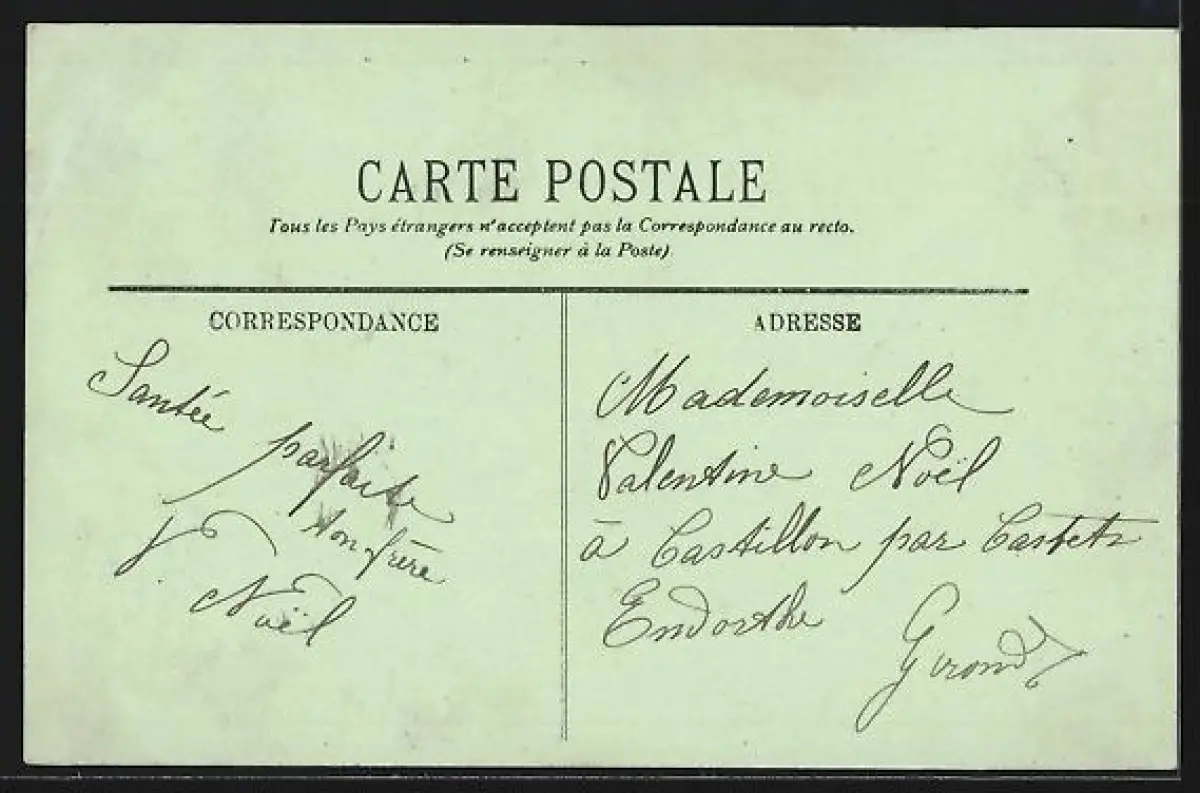 CARTE POSTALE
Tous les Pays étrangers n'acceptent pas la Correspondance au recto.
(Se renseigner à la Poste)
CORRESPONDANCE
Santée
parfaite
ton frère
Noël
ADRESSE
Mademoiselle
Valentine Noël
à Castillon par Castets
Endorthe
Gironde